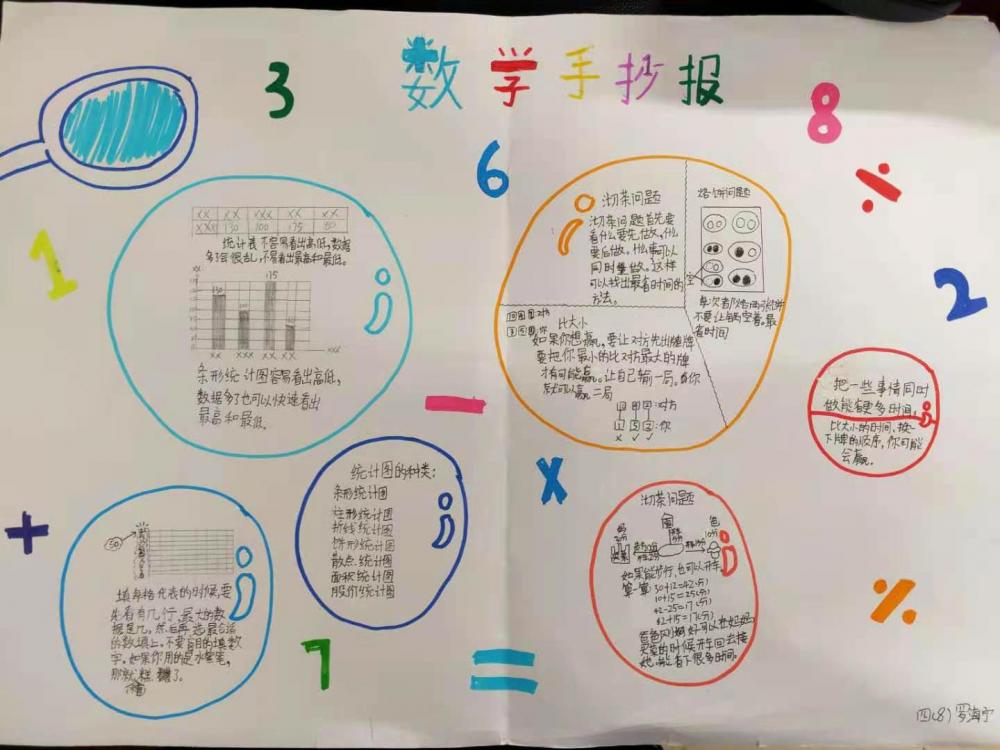 数学手抄报
3
8
6
÷
1
2
XX XX XXX XX XX
XXX 130 100 175 80
统计表不容易看出高低，数据
多了会很乱，不易看出最高和最低。
175
130
100
XX XXX XX XX XXX
条形统计图容易看出高低，
数据多了也可以快速看出
最高和最低。
沏茶问题
沏茶问题首先要
看什么要先做，什么
要后做。什么事可以
同时做。这样
可以找出最省时间的
方法。
烙饼问题
空
每次都烙两张饼
不要让锅空着。最
省时间
对方
你
比大小
如果你想赢，要让对方先出牌
要把你最小的比对方最大的牌
才有可能赢。让自己输一局。
就可以赢二局
:对方
:你
× ✓ ✓
把一些事情同时
做能省更多时间。
比大小的时间、换一
下牌的顺序，你可能
会赢。
-
统计图的种类：
条形统计图
柱形统计图
折线统计图
饼形统计图
散点统计图
面积统计图
股价统计图
×
+
50
填单格代表的时候，要
先看有几行，最大的数
据是几。然后再选最合适
的数填上。不要盲目的填数
字。如果你用的是水笔，
那就糟了。
沏茶问题
如果能步行，也可以开车。
算一算：30+12=42(分)
10+15=25(分)
42-25=17(分)
买菜的时候开车回去接
她。能省下很多时间。
%
7
=
四(8) 罗海宁